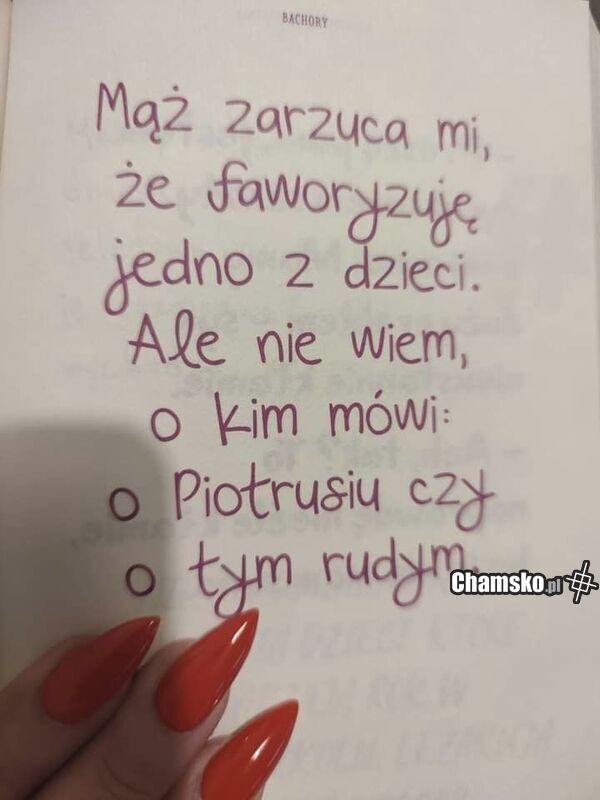 BACHORY
Mąż zarzuca mi,
że faworyzuję
jedno z dzieci.
Ale nie wiem,
o kim mówi:
o Piotrusiu czy
o tym rudym.
Chamsko.pl